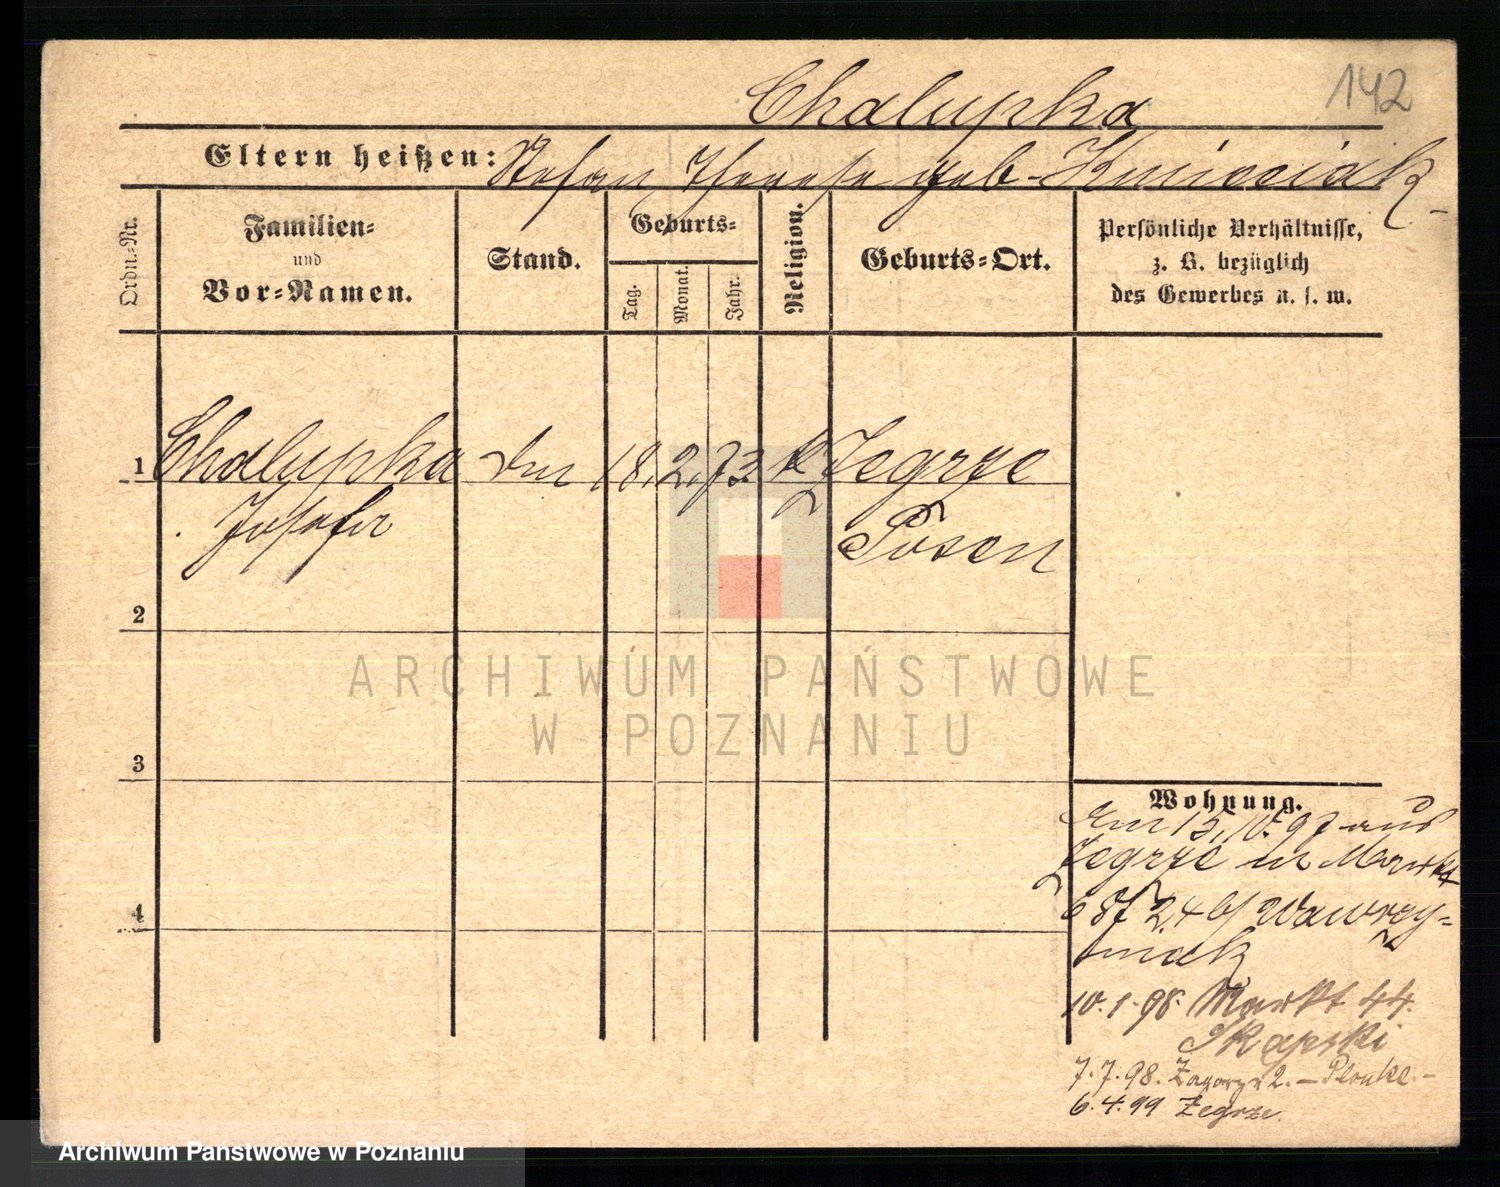 142
Chalupka
Eltern heißen: Stefan, Therese geb. Kmieciak
Ordn.=Nr.
Familien=
und
Vor=Namen.
Stand.
Geburts=
Tag.
Monat.
Jahr.
Religion.
Geburts=Ort.
Persönliche Verhältnisse,
z. B. bezüglich
des Gewerbes u. s. w.
1 Chalupka 18. 2. 73 k Zegrze
Josefa
Posen
2
3
4
ARCHIWUM PAŃSTWOWE
W POZNANIU
Wohnung.
15. 10. 97 aus
Zegrze in Markt
Wawrzy=
niak
10. 1. 98. Markt 44.
Skapski
7. 7. 98. Zagorze 2. –
6. 4. 99 Zegrze.
Archiwum Państwowe w Poznaniu